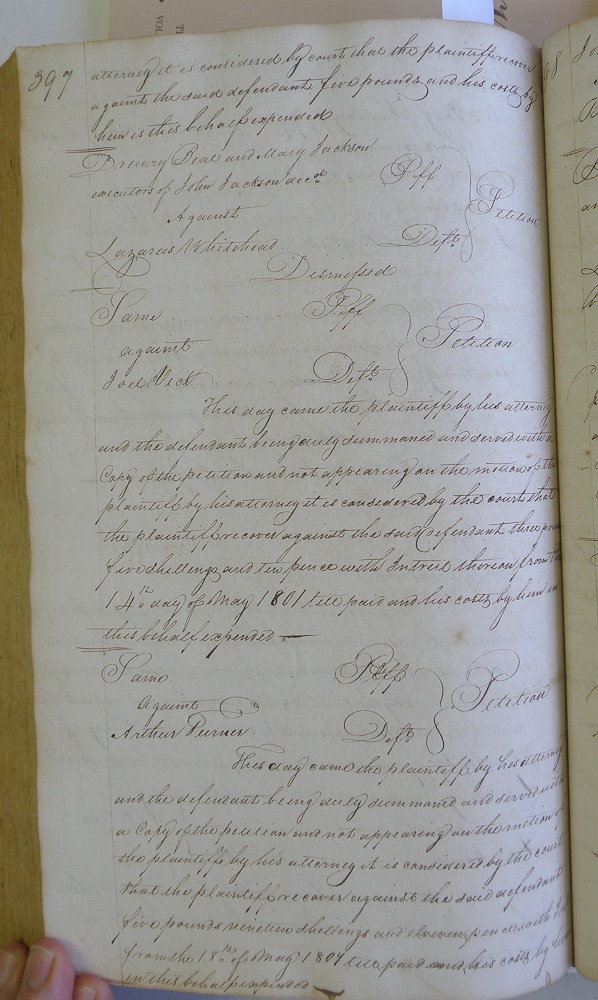 397
attorney it is considered by court that the plaintiff recover
against the said defendant five pounds and his costs by
him in this behalf expended
Drewry Beal and Mary Jackson
executors of John Jackson decd Plff
Against Petition
Lazarus Whitehead Deft
Dismissed
Same Plff
against Petition
Joel Vick Deft
This day came the plaintiff by his attorney
and the defendant being duly summoned and served with a
Copy of the petition and not appearing on the motion of the
plaintiff by his attorney it is considered by the court that
the plaintiff recover against the said defendant three poun
five shillings and ten pence with Intrest thereon from the
14th day of May 1801 till paid and his costs by him in
this behalf expended
Same Plff
Against Petition
Arthur Turner Deft
This day came the plaintiff by his attorney
and the defendant being duly summoned and served with
a Copy of the petition and not appearing on the motion of
the plaintiff by his attorney it is considered by the court
that the plaintiff recover against the said defendant
five pounds nineteen shillings and eleven pence with
from the 18th of May 1801 till paid and his costs by him
in this behalf expended